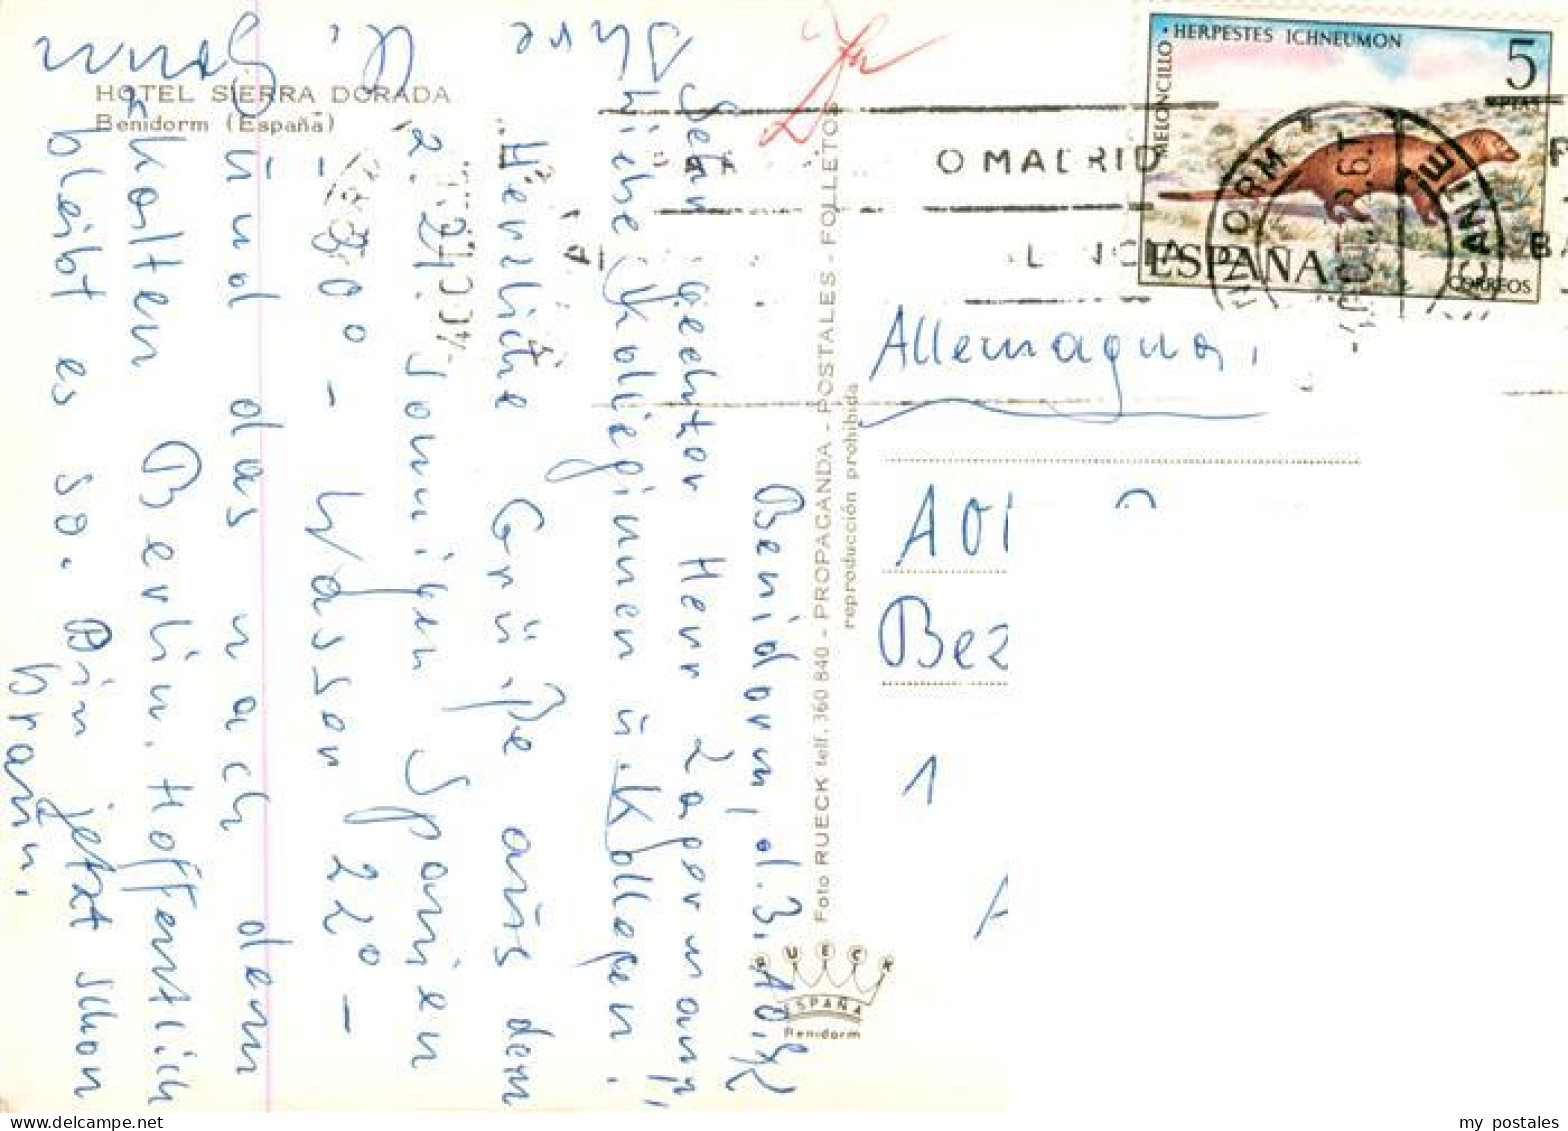 HOTEL SIERRA DORADA
Benidorm (España)
Benidorm, d. 3.10.
Sehr geehrter Herr Lagermann,
liebe Kolleginnen u. Kollegen.
Herzliche Grüße aus dem
sonnigen Spanien
- 30° - Wasser 22° -
Und das nach dem
kalten Berlin. Hoffentlich
bleibt es so. Bin jetzt schon
braun.
Ihre
Foto RUECK telf. 360 840 - PROPAGANDA - POSTALES - FOLLETOS
reproducción prohibida
RUECK
ESPAÑA
Benidorm
MELONCILLO · HERPESTES ICHNEUMON
5
PTAS
ESPAÑA
CORREOS
O MADRID
Allemagna,
Bez
1
my postales